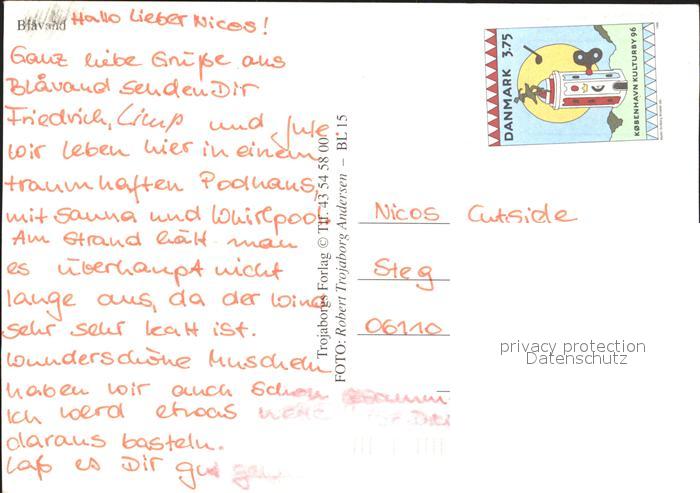 Blåvand
Hallo lieber Nicos!
Ganz liebe Grüße aus
Blåvand senden Dir
Friedrich, und Jule
wir leben hier in einem
traumhaften Poolhaus,
mit Sauna und Whirlpool
Am Strand hält man
es überhaupt nicht
lange aus, da der Wind
sehr sehr kalt ist.
Wunderschöne Muscheln
haben wir auch schon
Ich werd etwas
daraus basteln.
Laß es Dir gut
Trojaborgs Forlag © Tlf. 43 54 58 00
FOTO: Robert Trojaborg Andersen – BL 15
DANMARK 3.75
KØBENHAVN KULTURBY 96
Nicos
Steg
06110
privacy protection
Datenschutz